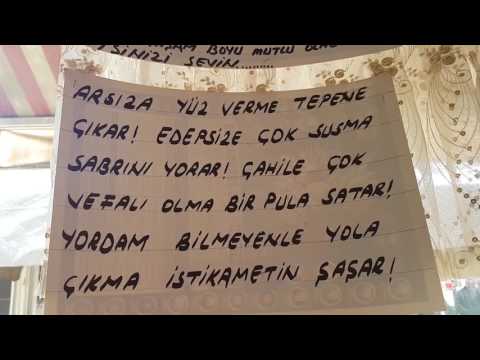 BOYU MUTLU
İŞİNİZİ SEVİN..........
ARSIZA YÜZ VERME TEPENE
ÇIKAR! EDEPSİZE ÇOK SUSMA
SABRINI YORAR! CAHİLE ÇOK
VEFALI OLMA BİR PULA SATAR!
YORDAM BİLMEYENLE YOLA
ÇIKMA İSTİKAMETİN ŞAŞAR!